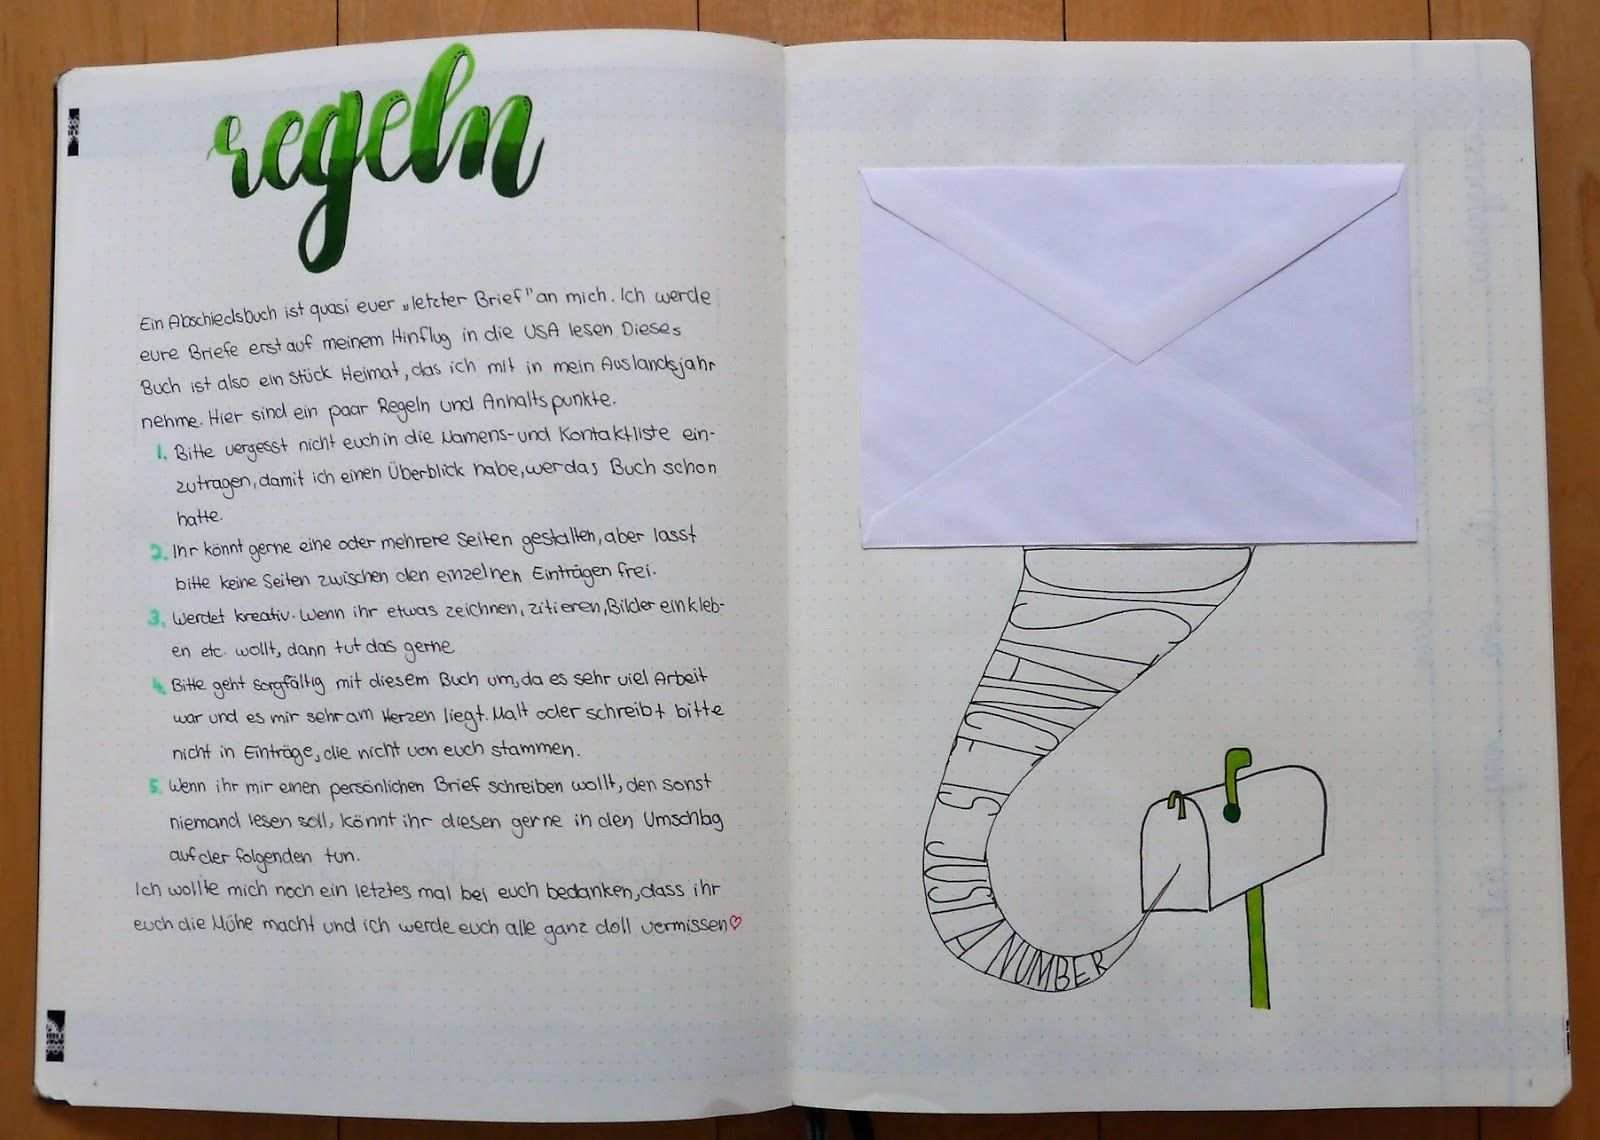 regeln
Ein Abschiedsbuch ist quasi euer „letzter Brief" an mich. Ich werde
eure Briefe erst auf meinem Hinflug in die USA lesen. Dieses
Buch ist also ein Stück Heimat, das ich mit in mein Auslandsjahr
nehme. Hier sind ein paar Regeln und Anhaltspunkte.
1. Bitte vergesst nicht euch in die Namens- und Kontaktliste ein-
zutragen, damit ich einen Überblick habe, wer das Buch schon
hatte.
2. Ihr könnt gerne eine oder mehrere Seiten gestalten, aber lasst
bitte keine Seiten zwischen den einzelnen Einträgen frei.
3. Werdet kreativ. Wenn ihr etwas zeichnen, zitieren, Bilder einkleb-
en etc. wollt, dann tut das gerne
4. Bitte geht sorgfältig mit diesem Buch um, da es sehr viel Arbeit
war und es mir sehr am Herzen liegt. Malt oder schreibt bitte
nicht in Einträge, die nicht von euch stammen.
5. Wenn ihr mir einen persönlichen Brief schreiben wollt, den sonst
niemand lesen soll, könnt ihr diesen gerne in den Umschlag
auf der folgenden tun.
Ich wollte mich noch ein letztes mal bei euch bedanken, dass ihr
euch die Mühe macht und ich werde euch alle ganz doll vermissen♡
DISTANCE IS JUST A NUMBER